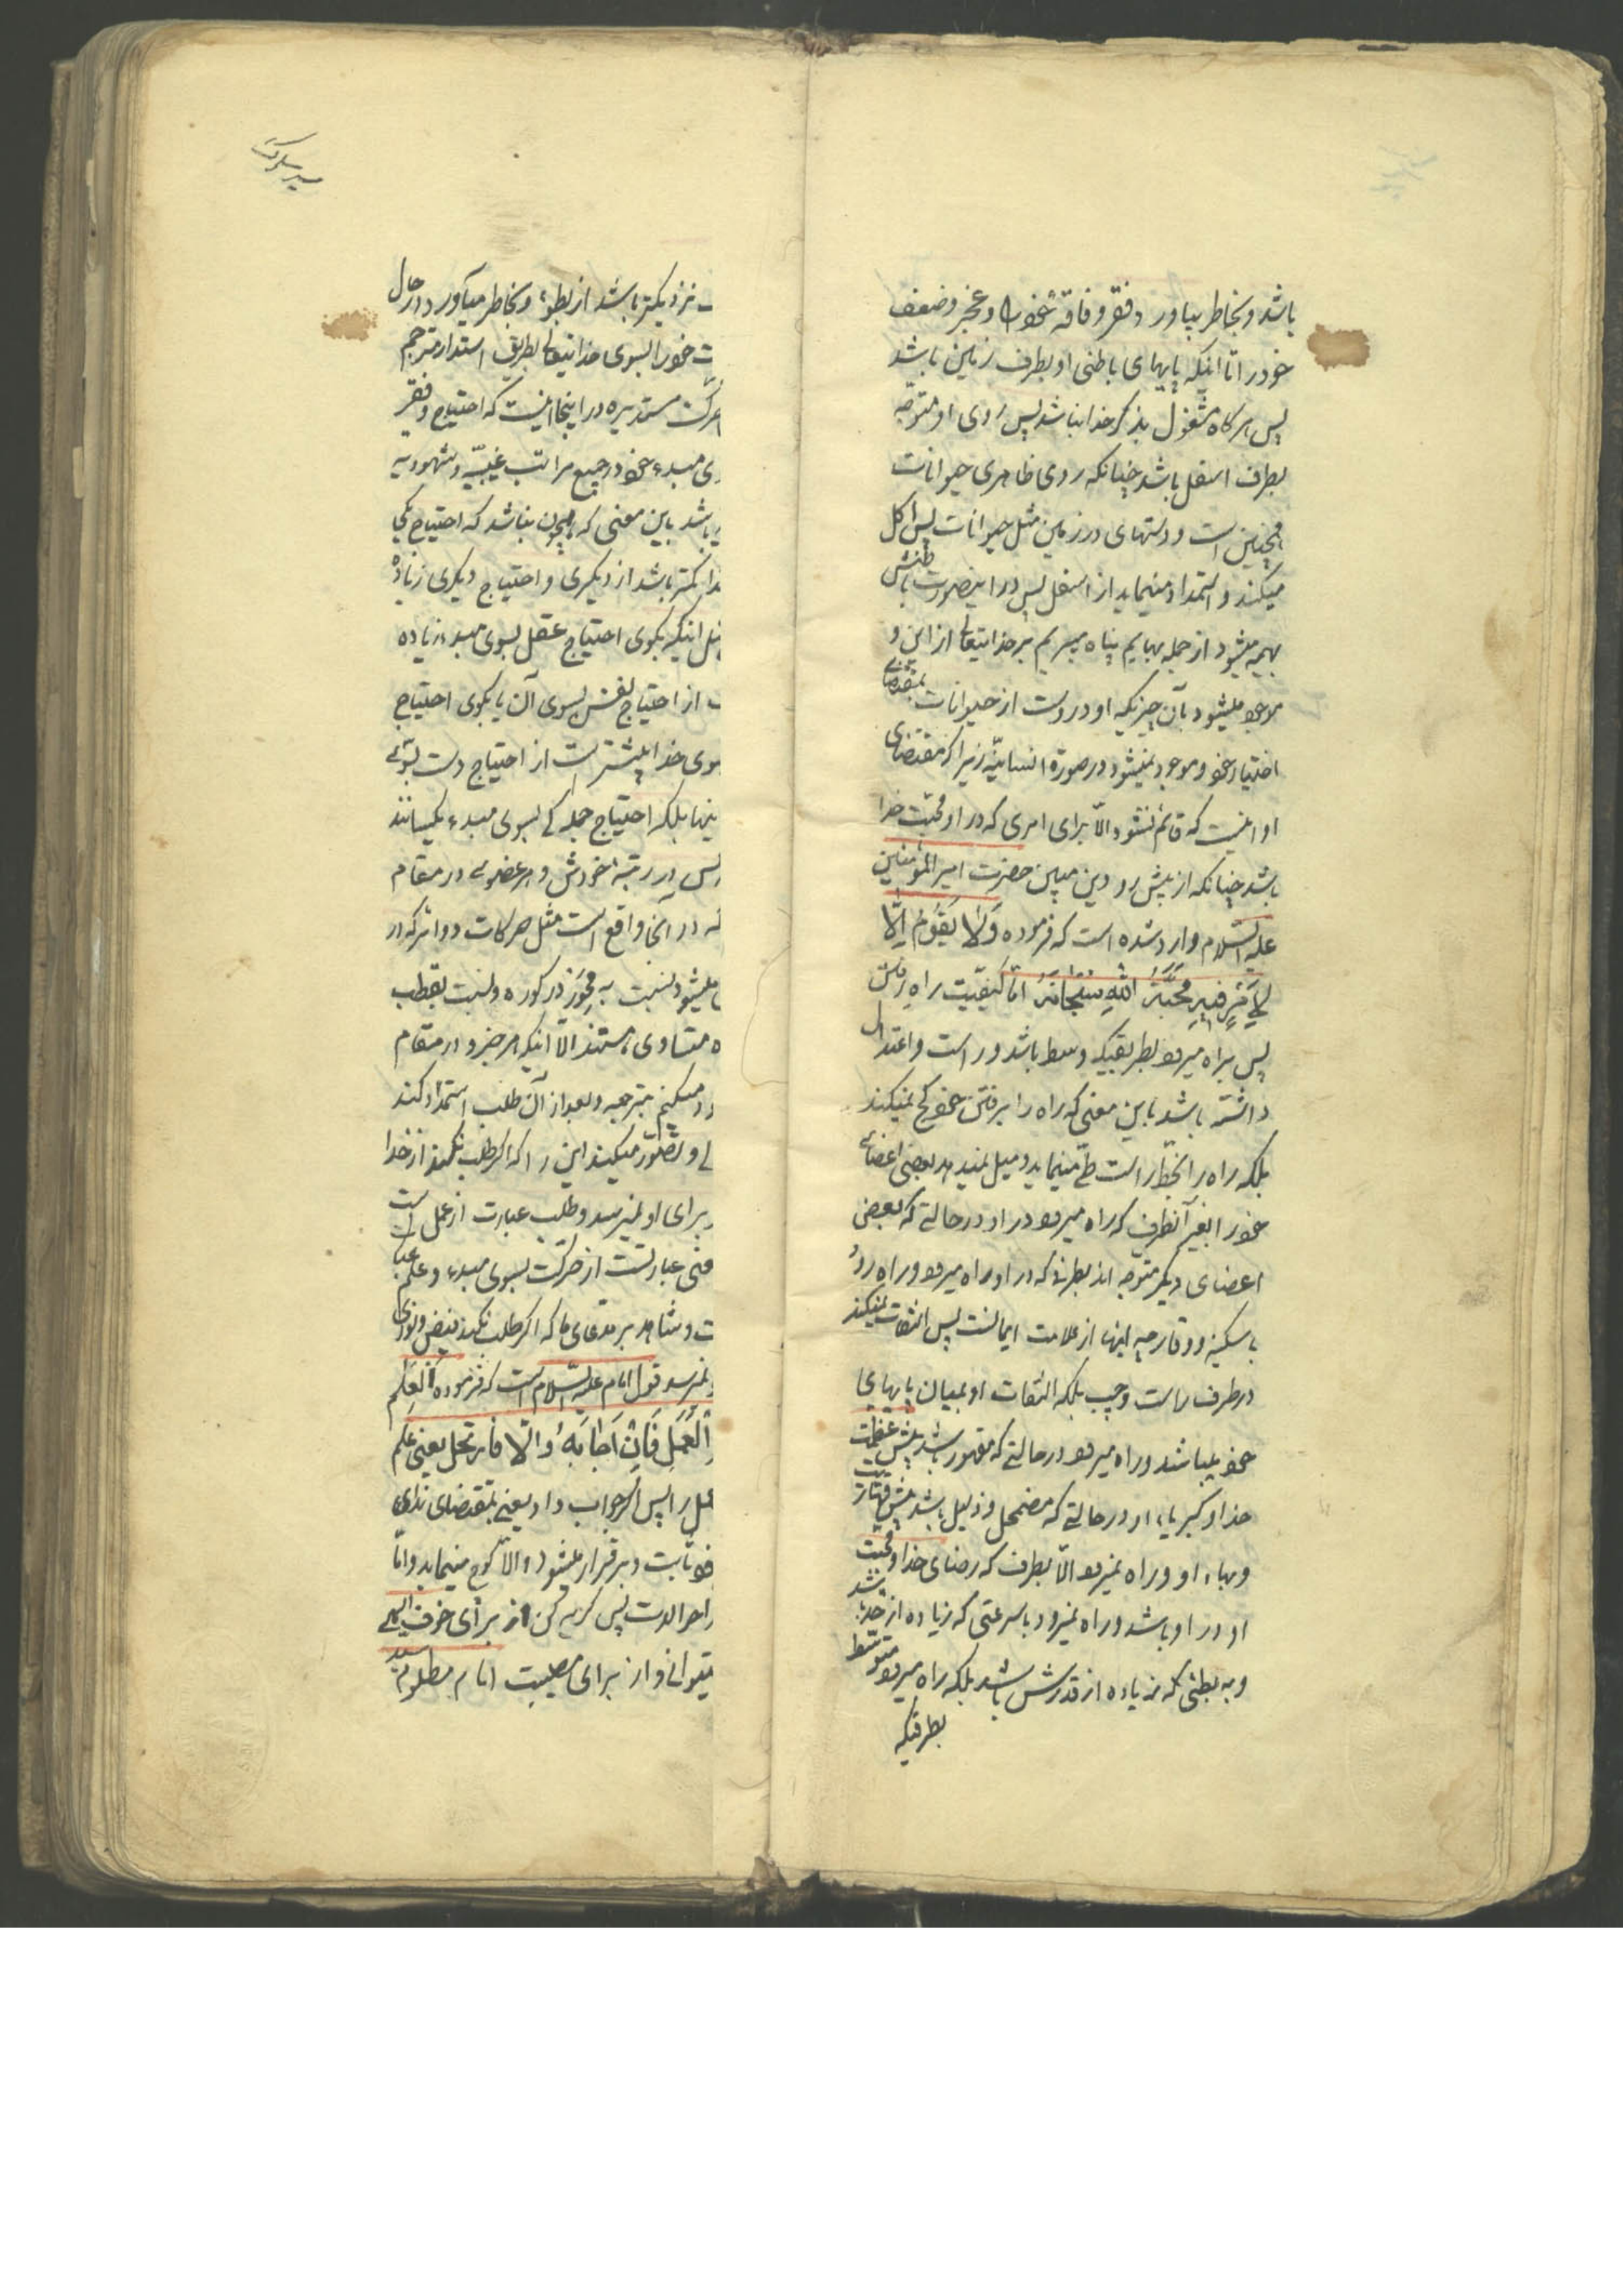 باشد و بخاطر بیاورد فقر و فاقه خود را و عجز و ضعف
خود را تا اینکه پایهای باطنی او بطرف زمین باشد
پس هرکاه مشغول بذکر خدا نباشد پس روی او متوجّه
بطرف اسفل باشد چنانکه روی ظاهری حیوانات
همچنین است و دستهای در زمین مثل حیوانات پس اکل
میکند و استمداد مینماید از اسفل پس در اینصورت باطنش
بهیمه میشود از جمله بهایم پناه میبریم بر خدایتعالی از این و
موجود میشود بآن چیزیکه او در اوست از حیوانات بمقتضای
اختیار خود و موجود نمیشود در صورة انسانیّه زیرا که مقتضای
او اینست که قائم نشود الّا برای امری که در او محبّت خدا
باشد چنانکه از پیش رو دین مبین حضرت امیر المؤمنین
علیه السّلام وارد شده است که فرموده وَلا یَقُومُ اِلّا
لِاَمْرٍ فیهِ مَحَبَّةُ اللهِ سُبْحانَهُ امّا کیفیّت راه رفتن
پس براه میرود بطریقیکه وسط باشد و راست و اعتدال
داشته باشد باین معنی که راه را برفتن خود کج نمیکند
بلکه راه را بخط راست طیّ مینماید و میل نمیدهد بعضی اعضای
خود را بغیر آنطرف که راه میرود در او در حالتی که بعض
اعضای دیکر متوجه اند بطرفی که در او راه میرود و راه رود
با سکینه و وقار چه اینها از علامت ایمانست پس التفات نمیکند
در طرف راست و چپ بلکه التفات او بمیان پایهای
خود میباشد و راه میرود در حالتی که مقهور باشد پیش عظمت
خدا و کبریاء او در حالتی که مضمحل و ذلیل باشد پیش
وبهاء او و راه نمیرود الّا بطرف که رضای خدا و محبت
او در او باشد و راه نمیرود باسرعتی که زیاده از حد باشد
و به بطئی که زیاده از قدرش باشد بلکه راه میرود متوسّط
بطریقیکه
سیر سلوک
نزدیکتر باشد از بطوء و بخاطر میآورد در حال
خود را بسوی خدایتعالی بطریق استداره مترجم
مستدیره در اینجا اینست که احتیاج و فقر
مبدء خود در جمیع مراتب غیبیّه و شهودیه
باشد باین معنی که همچون نباشد که احتیاج یکی
کمتر باشد از دیکری و احتیاج دیکری زیاده
اینکه بکوی احتیاج عقل بسوی مبدء زیاده
از احتیاج نفس بسوی آن یا بکوی احتیاج
خدا بیشتر است از احتیاج دست بسوی
بلکه احتیاج جمله بسوی مبدء یکسانند
در رتبه خودش و هر عضوی در مقام
در آنجا واقع است مثل حرکات دوائر که در
میشود نسبت به محور ذر کوره و نسبت بقطب
متساوی هستند الّا اینکه هر جزو در مقام
متوجه و بعد از آن طلب استمداد کند
و تصوّر میکند این را که اکر طلب نکند از خدا
برای او نمیرسد و طلب عبارت از عمل است
عبارتست از حرکت بسوی مبدء و علم
و شاهد بر مدّعای ما که اکر طلب نکند فیض و نوری
نمیرسد قول امام علیه السّلام است که فرموده اَلْعِلْمُ
الْعَمَلَ فَاِنْ اَجابَهُ وَاِلّا فارتحل یعنی علم
را پس اکر جواب داد یعنی بمقتضای ندای
ثابت و برقرار میشود و الّا کوچ مینماید و امّا
پس کریه کن از برای خوف الهی
و از برای مصیبت امام مظلوم